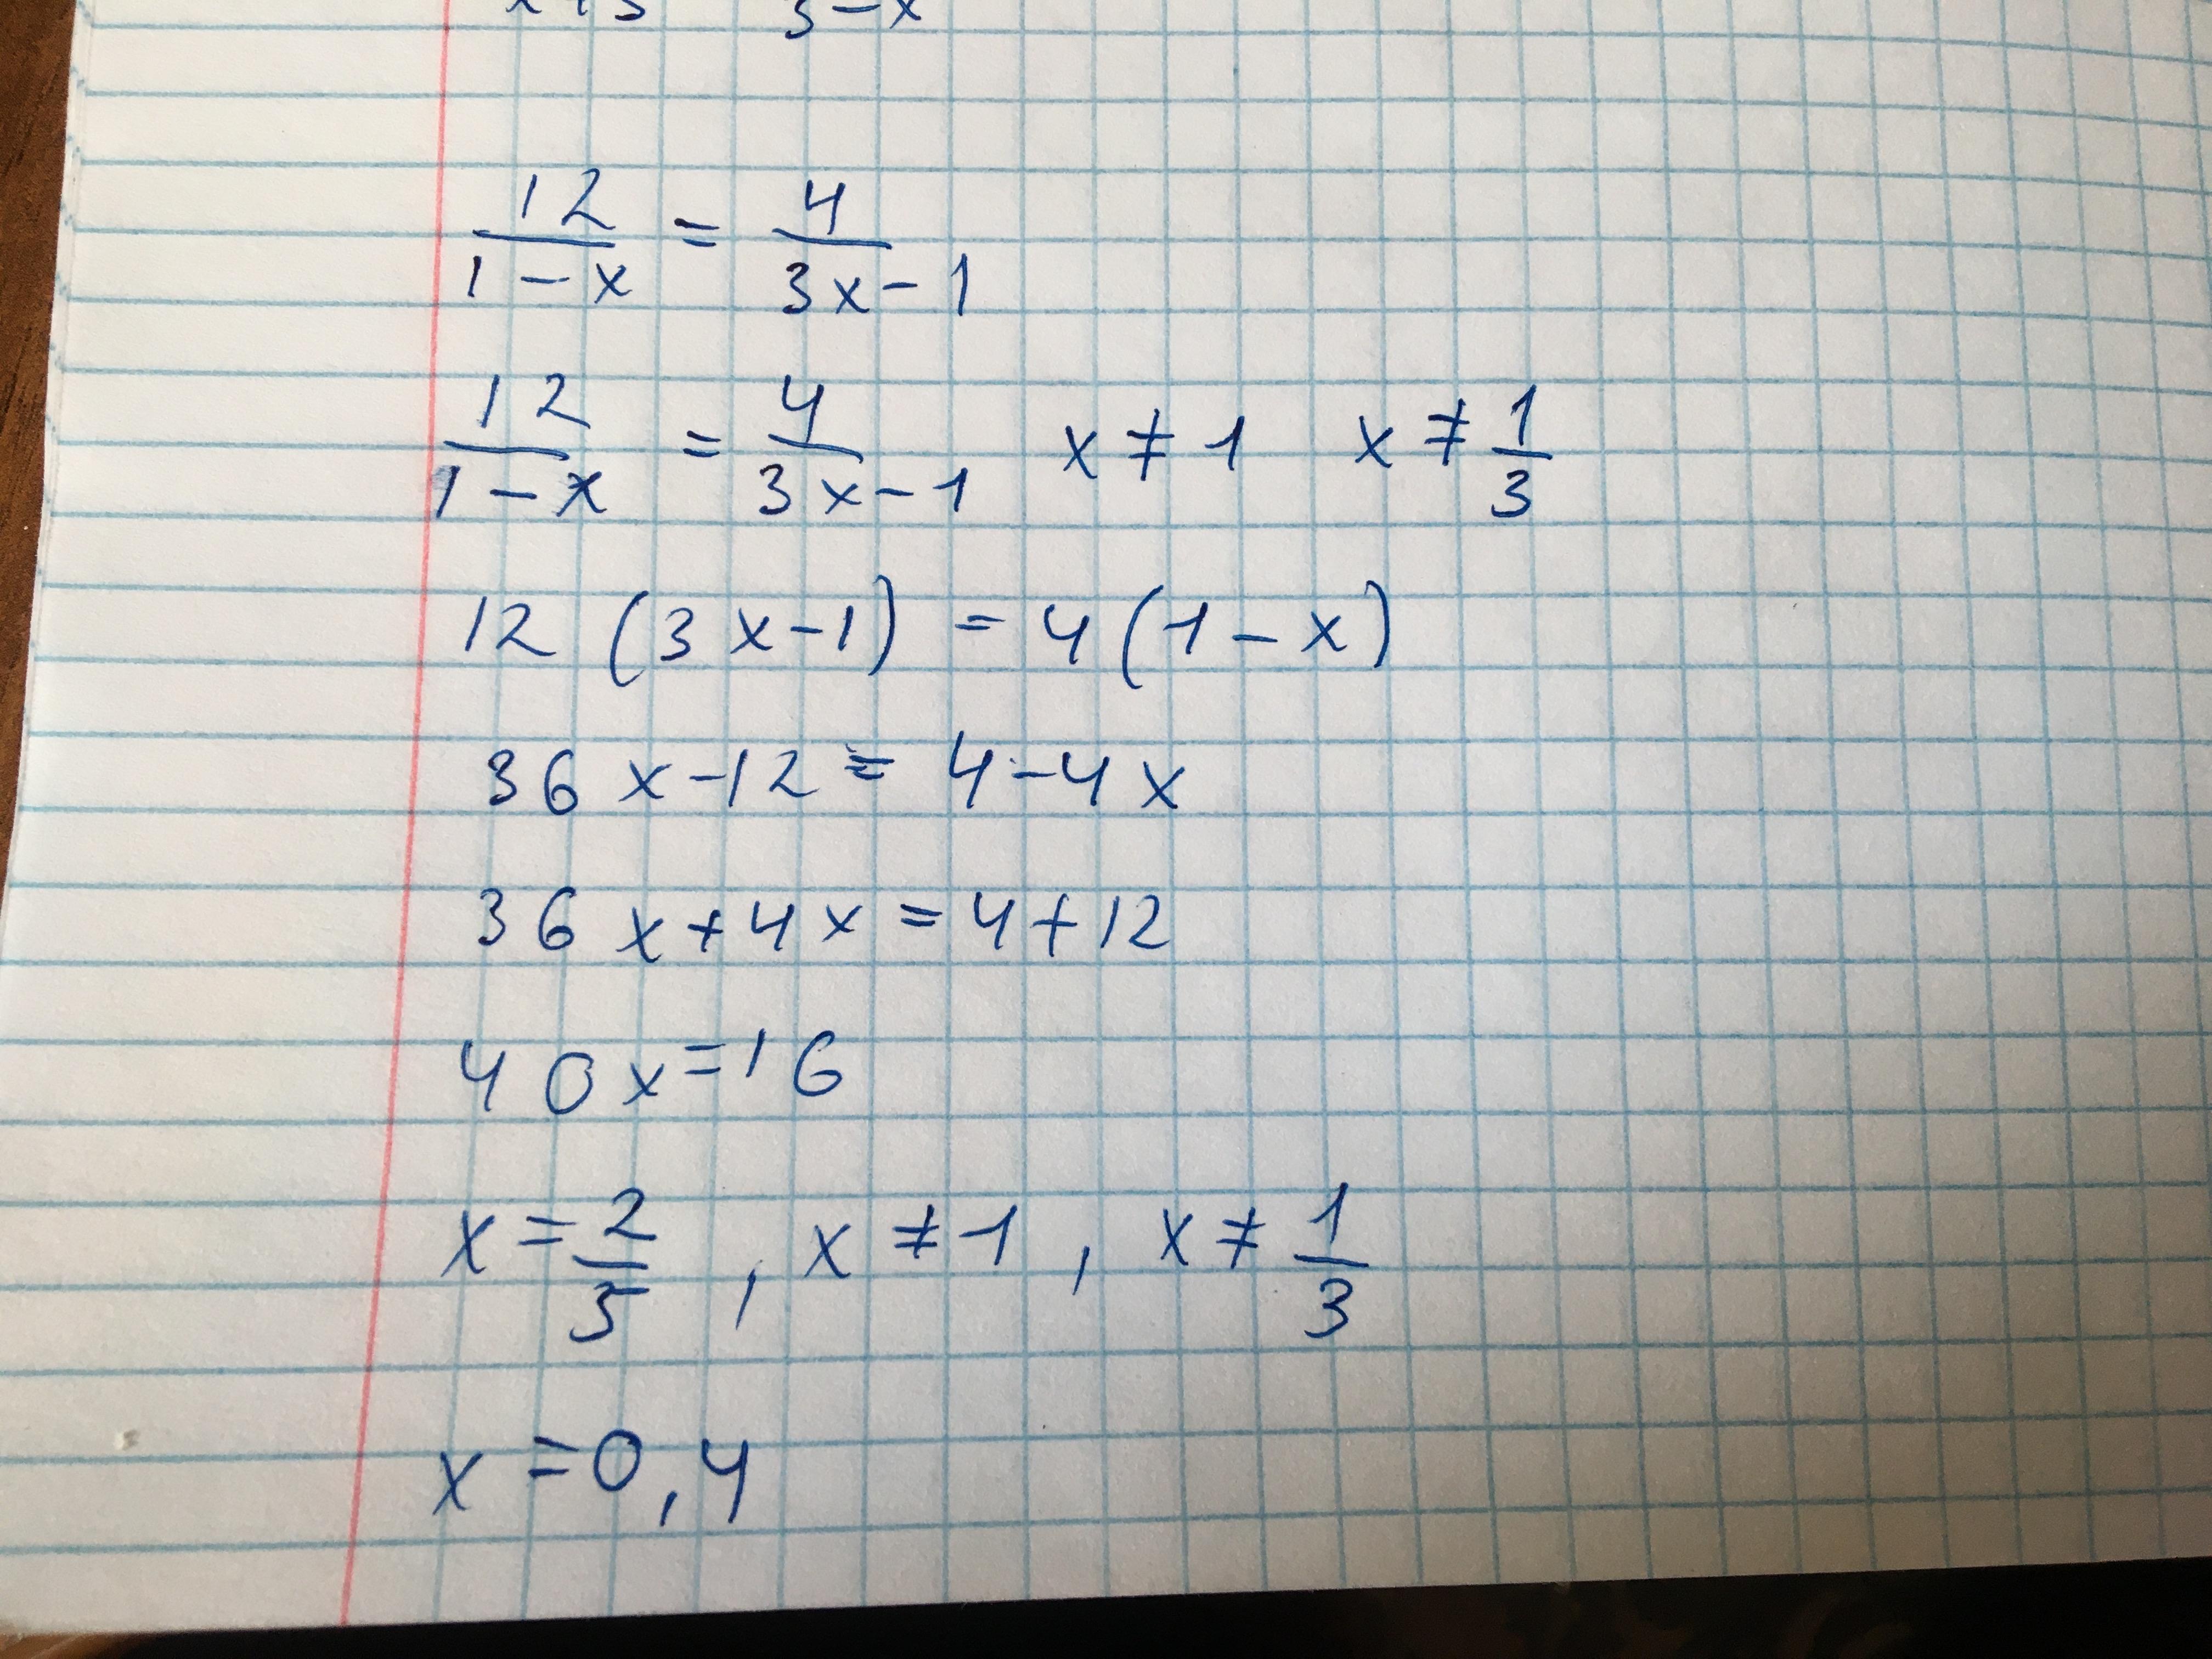 3-x
12/1-x = 4/3x-1
12/1-x = 4/3x-1 x≠1 x≠1/3
12(3x-1) = 4(1-x)
36x-12 = 4-4x
36x+4x = 4+12
40x=16
x=2/5, x≠1, x≠1/3
x=0,4